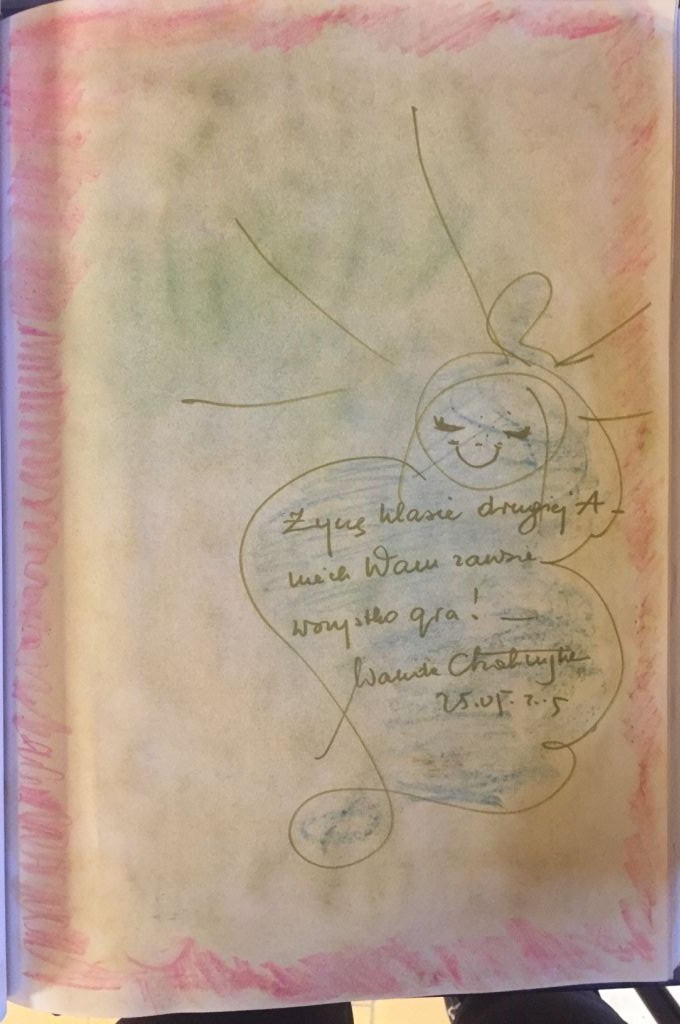 Życzę klasie drugiej A -
niech Wam zawsze
wszystko gra! —
Wanda Chotomska
25.05.